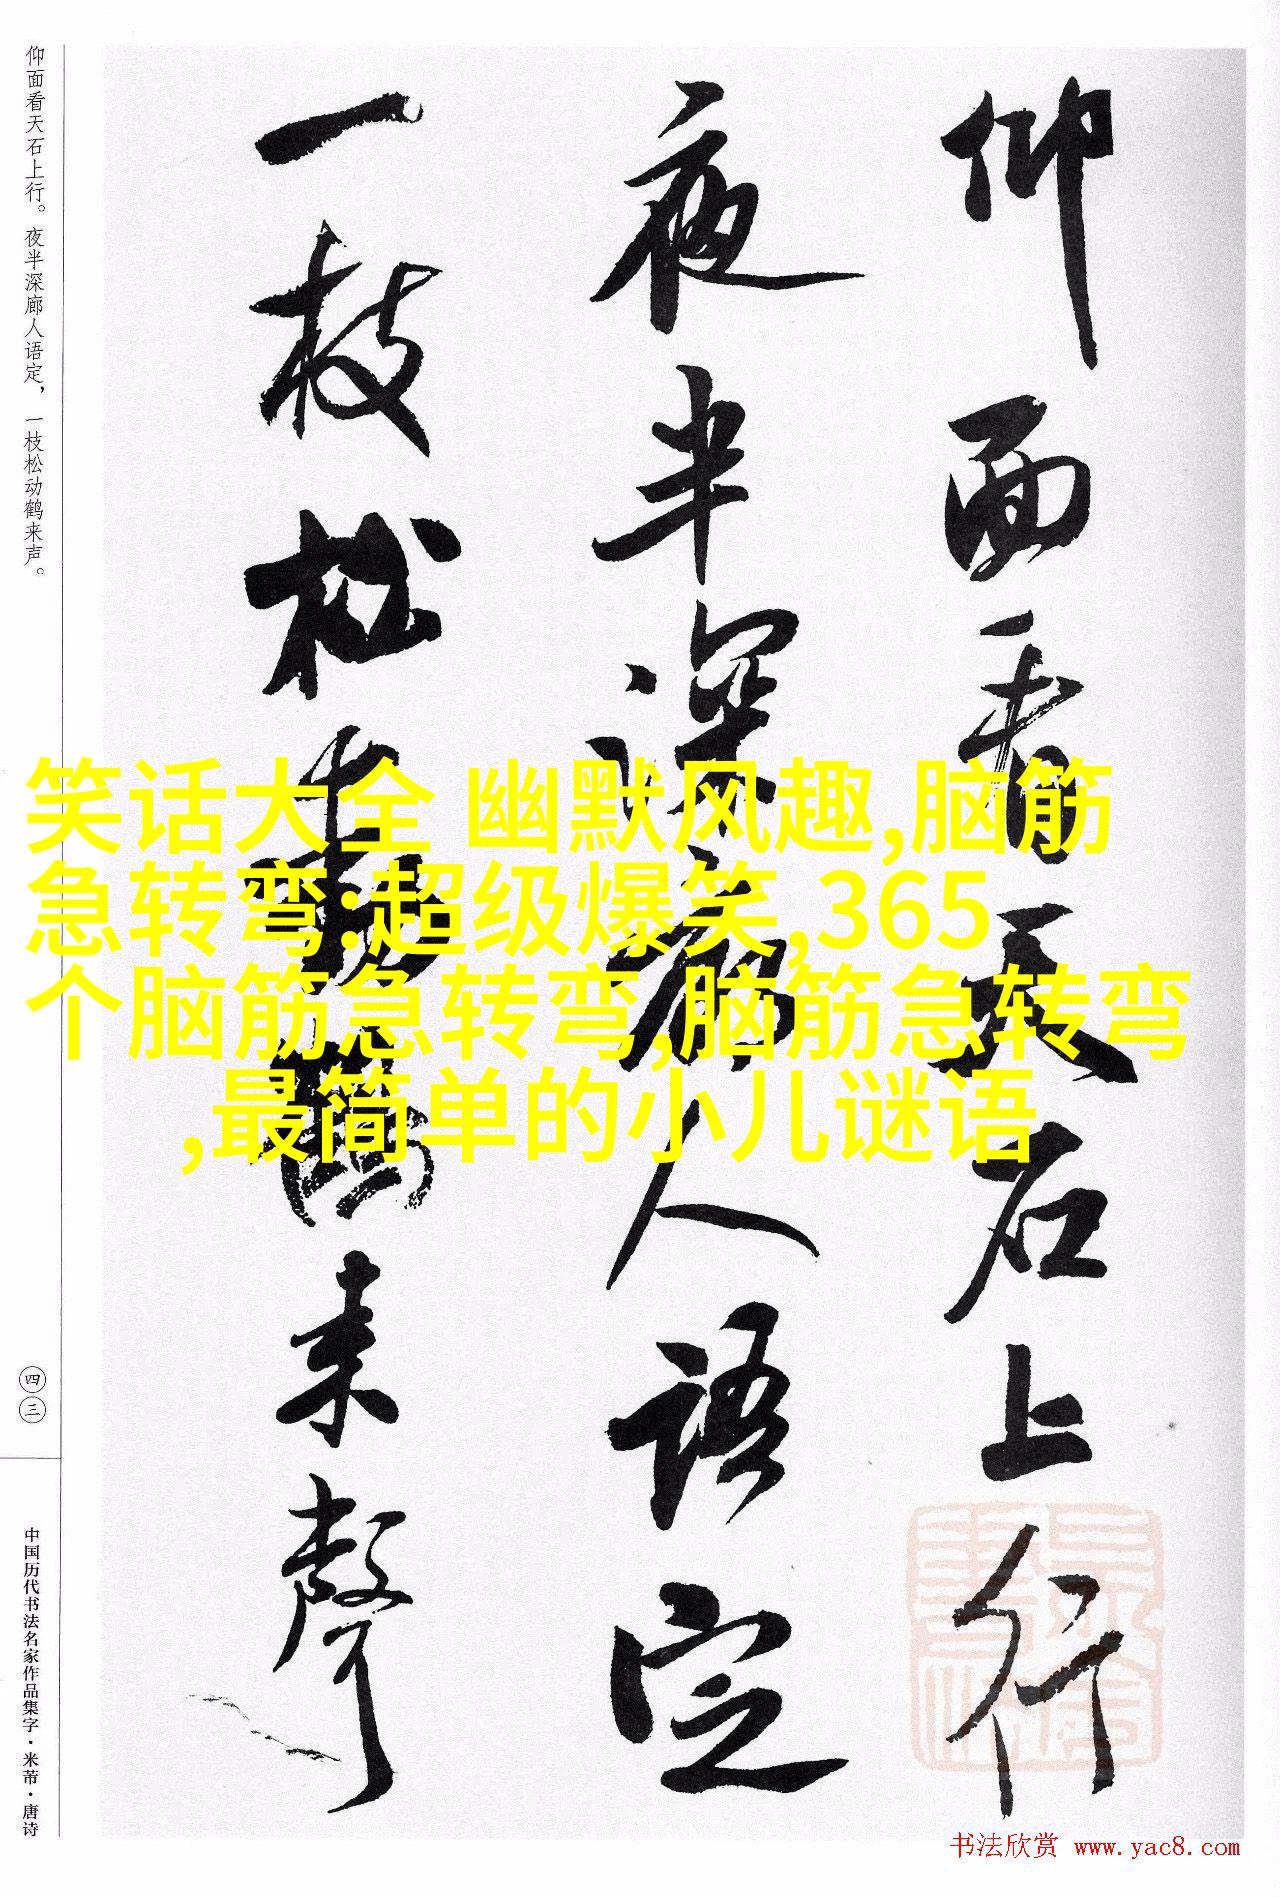 仰面看天石上行
夜半深廊人语定
一枝松動鶴来聲
仰面看天石上行。夜半深廊人语定，一枝松动鹤来声。
四三
中国历代书法名家作品集字·米芾·唐诗
笑话大全 幽默风趣,脑筋
急转弯:超级爆笑,365
个脑筋急转弯,脑筋急转弯
,最简单的小儿谜语
书法欣赏 www.yac8.com